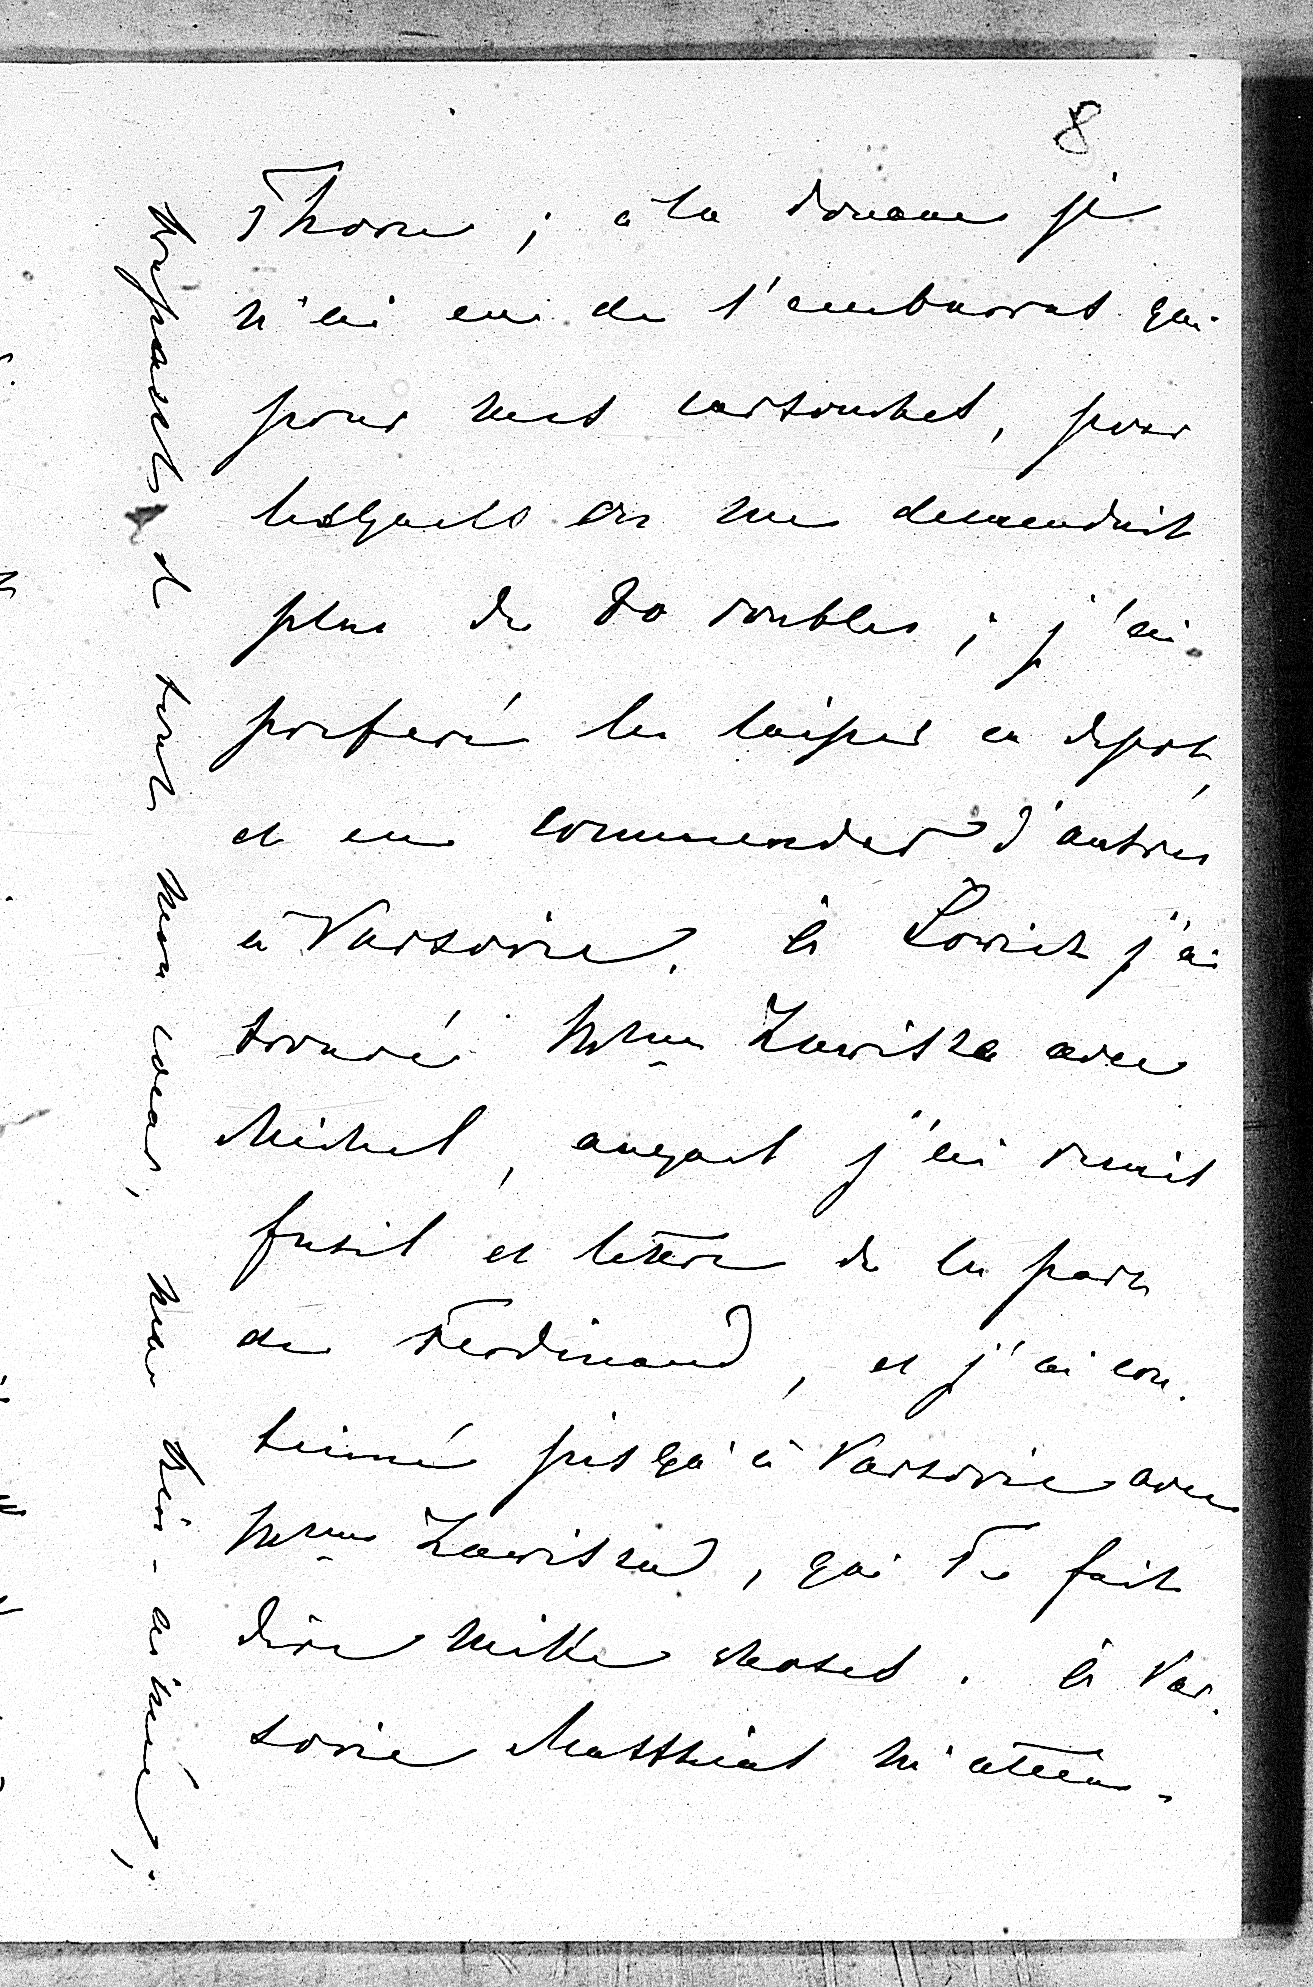 8
Thorn ; à la douane je
n'ai eu de l'embarras que
pour mes cartouches, pour
lesquels on me demendait
plus de 80 roubles ; j'ai
preferé les laisser en depot,
et en commender d'autres
à Varsovie. à Lowicz j'ai
trouvé Mme Zawisza avec
Michel, auquel j'ai remis
fusil et lettre de la part
de Ferdinand, et j'ai con-
tinué jusqu'à Varsovie avec
Mme Zawisza, qui Te fait
dire mille choses. à Var-
sovie Matthias m'atten-
embrasse de tout mon coeur, mon très-aimée ;